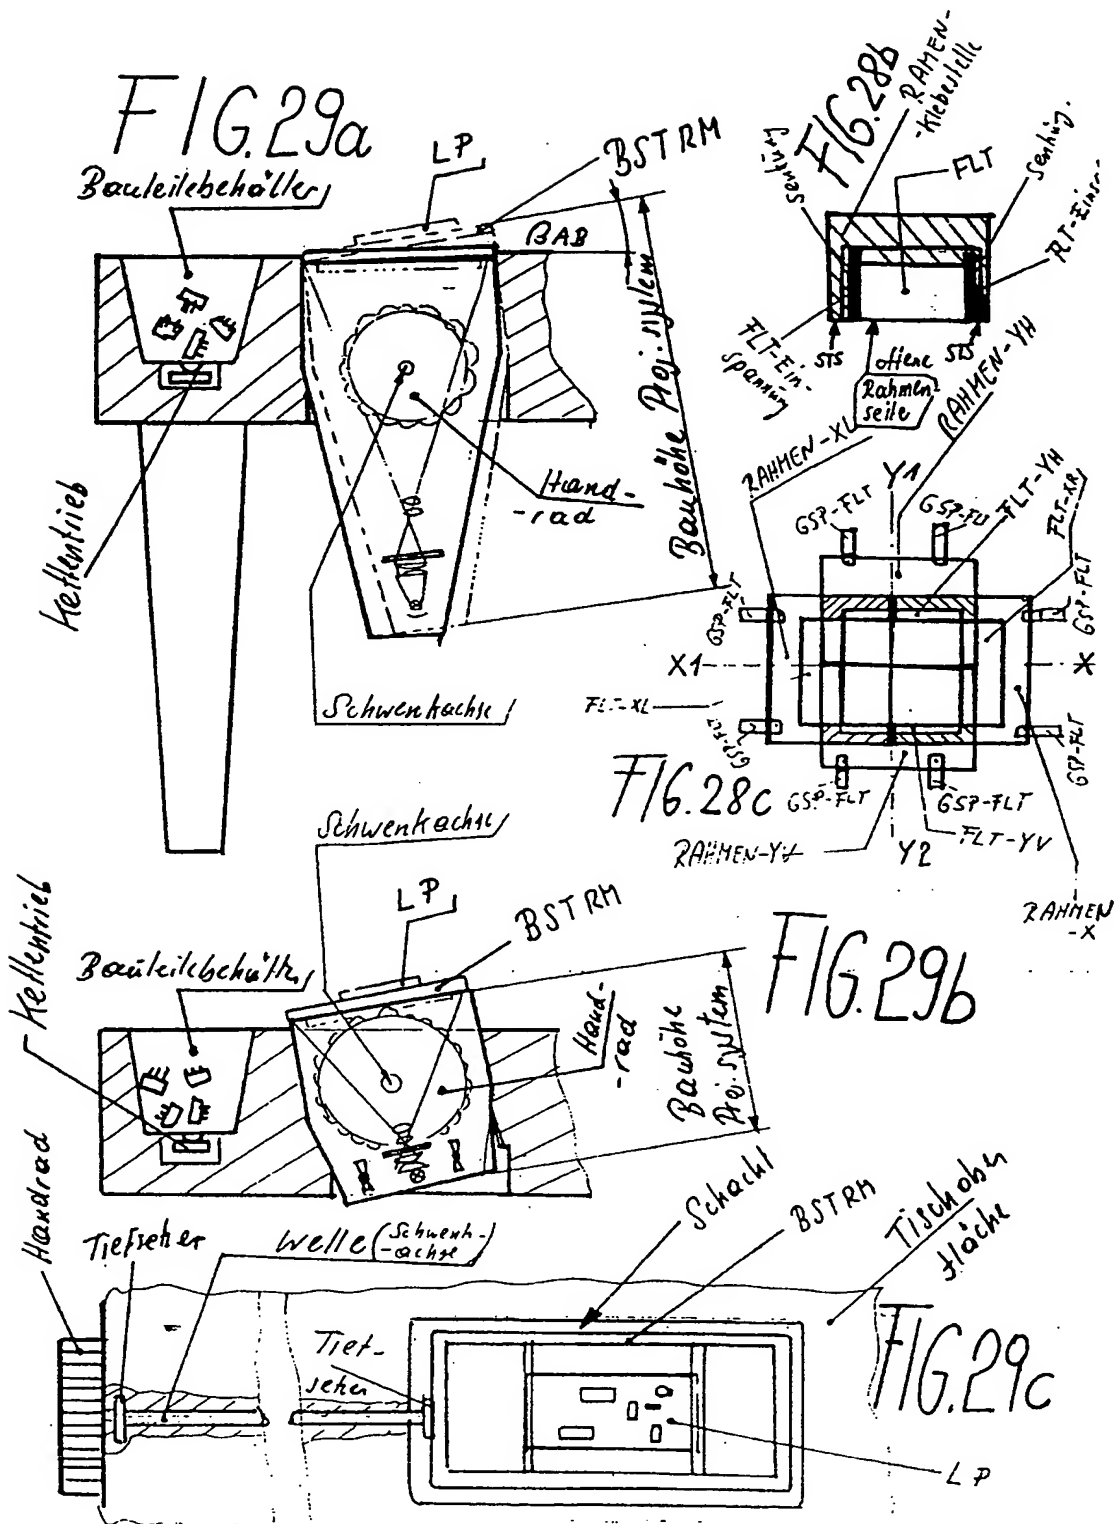 FIG.29a
Bauteilebehälter
LP
BSTRM
BAB
Kettentrieb
Hand-
-rad
Schwenkachse
Bauhöhe Proj.system
FIG.28b
RAMEN-
-Klebestelle
Senkung
FLT
Senkung.
RT-Einsc
FLT-Ein-
spannung
STS
offene
Rahmen
seite
STS
RAHMEN-YH
RAHMEN-XL
Y1
GSP-FLT
GSP-FLT
FLT-YH
FLT-XR
GSP-FLT
GSP-FLT
X1
X
FLT-XL
GSP-FLT
GSP-FLT
FIG.28c
GSP-FLT
GSP-FLT
FLT-YV
RAHMEN-YV
Y2
RAHMEN
-X
Schwenkachse
LP
BSTRM
Kettentrieb
Bauteilebehält
Hand-
-rad
Bauhöhe
Proj.system
FIG.29b
Handrad
Tiefseher
Welle (Schwenk-
-achse)
Schacht
BSTRM
Tischober
fläche
Tief-
seher
FIG.29c
LP